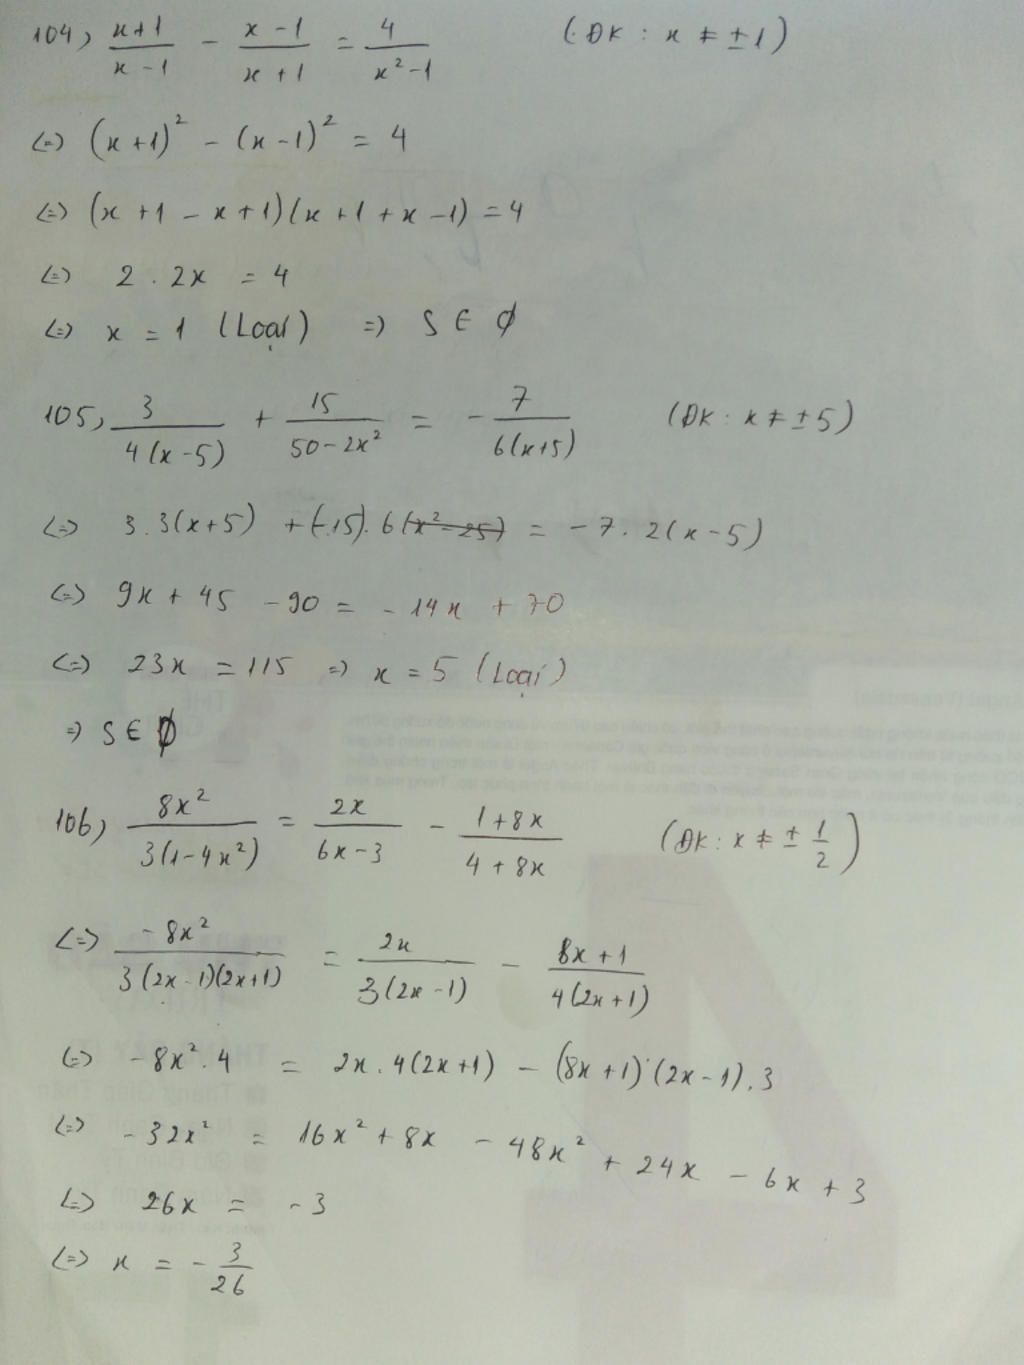 104, (x+1)/(x-1) - (x-1)/(x+1) = 4/(x²-1) (ĐK : x ≠ ±1)
(=) (x+1)² - (x-1)² = 4
(=) (x+1-x+1)(x+1+x-1) = 4
(=) 2 . 2x = 4
(=) x = 1 (Loại) => S ∈ ∅
105, 3/(4(x-5)) + 15/(50-2x²) = - 7/(6(x+5)) (ĐK : x ≠ ±5)
(=) 3.3(x+5) + (-15).6(x²-25) = -7.2(x-5)
(=) 9x + 45 - 90 = -14x + 70
(=) 23x = 115 => x = 5 (Loại)
=> S ∈ ∅
106, 8x²/(3(1-4x²)) = 2x/(6x-3) - (1+8x)/(4+8x) (ĐK : x ≠ ± 1/2)
(=) -8x²/(3(2x-1)(2x+1)) = 2x/(3(2x-1)) - (8x+1)/(4(2x+1))
(=) -8x².4 = 2x.4(2x+1) - (8x+1)(2x-1).3
(=) -32x² = 16x² + 8x - 48x² + 24x - 6x + 3
(=) 26x = -3
(=) x = - 3/26